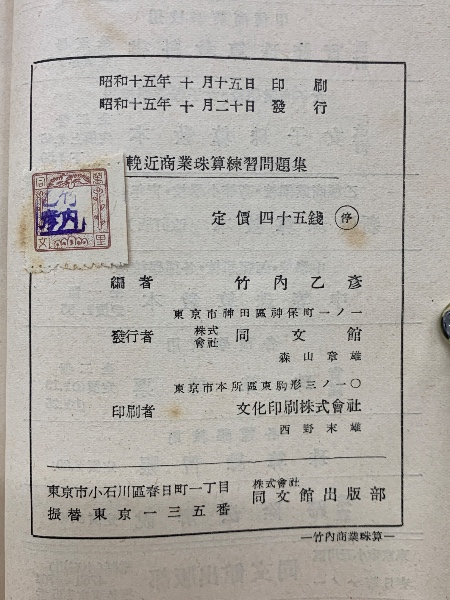 昭和十五年 十月十五日 印刷
昭和十五年 十月二十日 發行
輓近商業珠算練習問題集
定價 四十五錢 停
編者 竹內乙彥
東京市神田區神保町一ノ一
發行者 株式會社 同文館
森山章雄
東京市本所區東駒形三ノ一〇
印刷者 文化印刷株式會社
西野末雄
東京市小石川區春日町一丁目
振替東京一三五番
株式會社 同文館出版部
―竹內商業珠算―
竹內